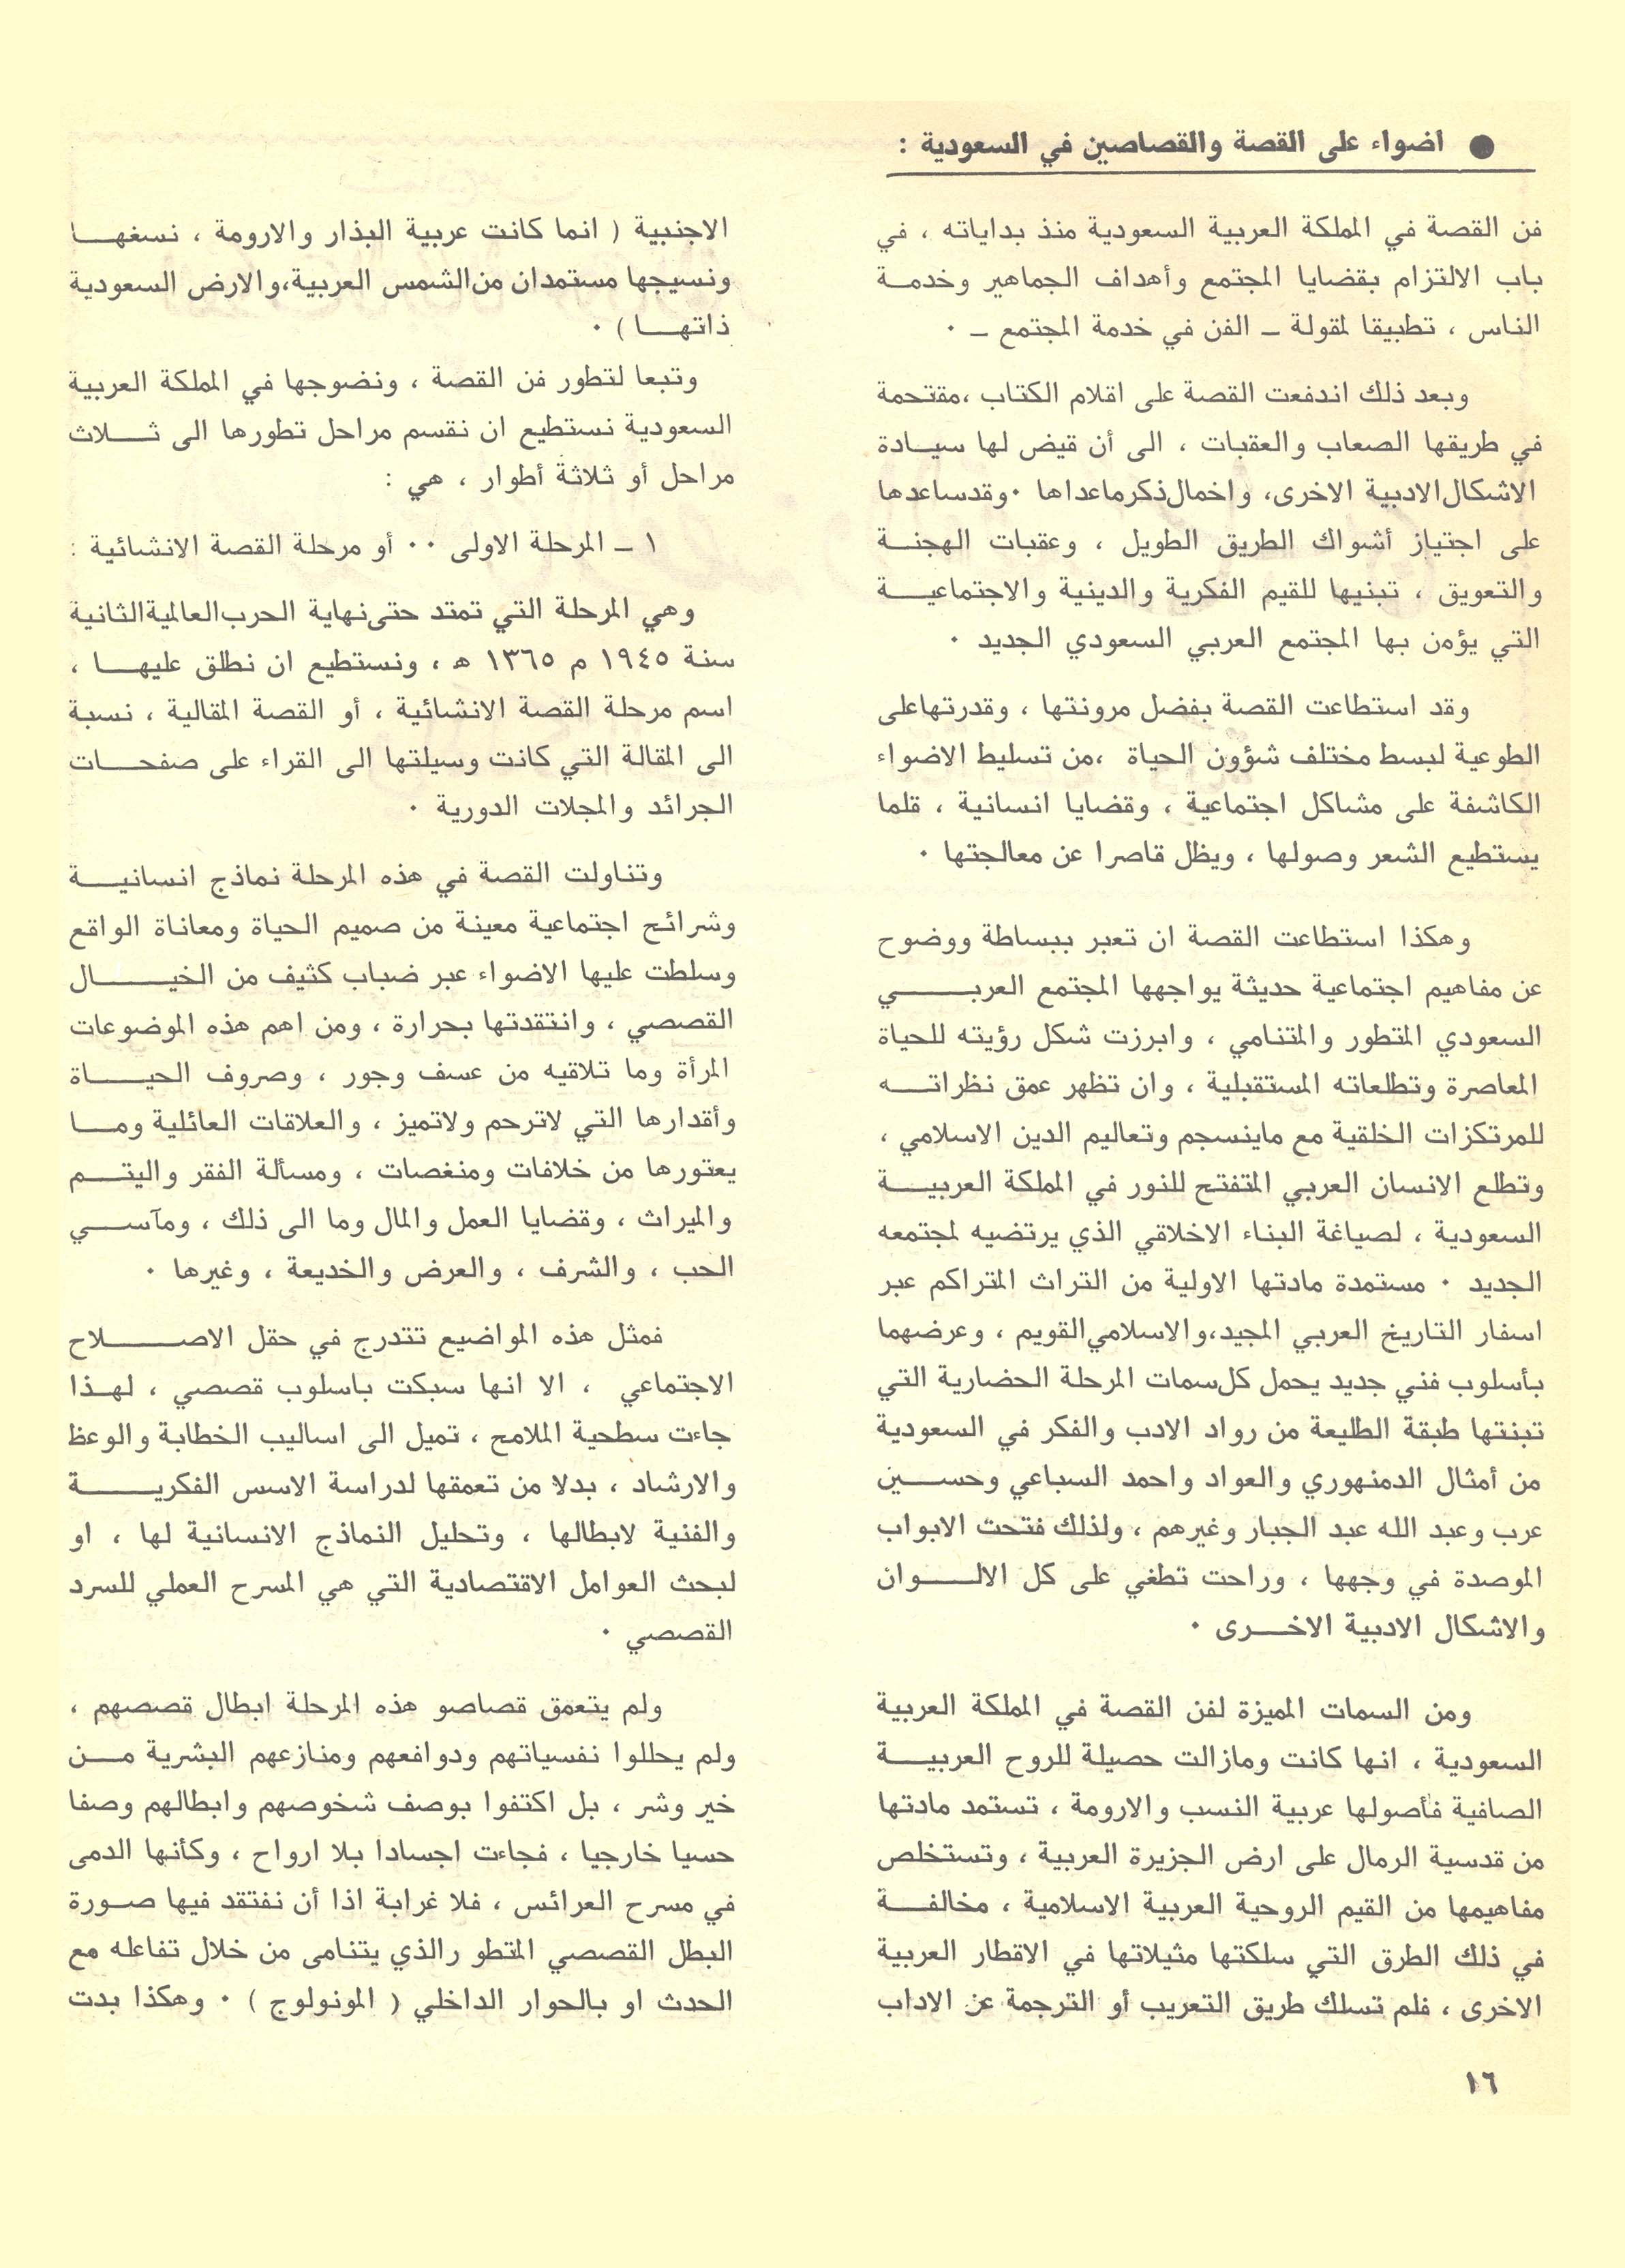 ● اضواء على القصة والقصاصين في السعودية :
فن القصة في المملكة العربية السعودية منذ بداياته ، في
باب الالتزام بقضايا المجتمع وأهداف الجماهير وخدمة
الناس ، تطبيقا لمقولة ـ الفن في خدمة المجتمع ـ ٠
وبعد ذلك اندفعت القصة على اقلام الكتاب ،مقتحمة
في طريقها الصعاب والعقبات ، الى أن قيض لها سيادة
الاشكال الادبية الاخرى، واخمال ذكر ماعداها ٠ وقد ساعدها
على اجتياز أشواك الطريق الطويل ، وعقبات الهجنة
والتعويق ، تبنيها للقيم الفكرية والدينية والاجتماعية
التي يؤمن بها المجتمع العربي السعودي الجديد ٠
وقد استطاعت القصة بفضل مرونتها ، وقدرتها على
الطوعية لبسط مختلف شؤون الحياة ،من تسليط الاضواء
الكاشفة على مشاكل اجتماعية ، وقضايا انسانية ، قلما
يستطيع الشعر وصولها ، ويظل قاصرا عن معالجتها ٠
وهكذا استطاعت القصة ان تعبر ببساطة ووضوح
عن مفاهيم اجتماعية حديثة يواجهها المجتمع العربي
السعودي المتطور والمتنامي ، وابرزت شكل رؤيته للحياة
المعاصرة وتطلعاته المستقبلية ، وان تظهر عمق نظراته
للمرتكزات الخلقية مع ماينسجم وتعاليم الدين الاسلامي ،
وتطلع الانسان العربي المتفتح للنور في المملكة العربية
السعودية ، لصياغة البناء الاخلاقي الذي يرتضيه لمجتمعه
الجديد ٠ مستمدة مادتها الاولية من التراث المتراكم عبر
اسفار التاريخ العربي المجيد،والاسلامي القويم ، وعرضهما
بأسلوب فني جديد يحمل كل سمات المرحلة الحضارية التي
تبنتها طبقة الطليعة من رواد الادب والفكر في السعودية
من أمثال الدمنهوري والعواد واحمد السباعي وحسين
عرب وعبد الله عبد الجبار وغيرهم ، ولذلك فتحت الابواب
الموصدة في وجهها ، وراحت تطغي على كل الالوان
والاشكال الادبية الاخرى ٠
ومن السمات المميزة لفن القصة في المملكة العربية
السعودية ، انها كانت ومازالت حصيلة للروح العربية
الصافية فأصولها عربية النسب والارومة ، تستمد مادتها
من قدسية الرمال على ارض الجزيرة العربية ، وتستخلص
مفاهيمها من القيم الروحية العربية الاسلامية ، مخالفة
في ذلك الطرق التي سلكتها مثيلاتها في الاقطار العربية
الاخرى ، فلم تسلك طريق التعريب أو الترجمة عن الاداب
الاجنبية ( انما كانت عربية البذار والارومة ، نسغها
ونسيجها مستمدان من الشمس العربية،والارض السعودية
ذاتها ) ٠
وتبعا لتطور فن القصة ، ونضوجها في المملكة العربية
السعودية نستطيع ان نقسم مراحل تطورها الى ثلاث
مراحل أو ثلاثة أطوار ، هي :
١ ـ المرحلة الاولى ٠٠ أو مرحلة القصة الانشائية :
وهي المرحلة التي تمتد حتى نهاية الحرب العالمية الثانية
سنة ١٩٤٥ م ١٣٦٥ ه ، ونستطيع ان نطلق عليها ،
اسم مرحلة القصة الانشائية ، أو القصة المقالية ، نسبة
الى المقالة التي كانت وسيلتها الى القراء على صفحات
الجرائد والمجلات الدورية ٠
وتناولت القصة في هذه المرحلة نماذج انسانية
وشرائح اجتماعية معينة من صميم الحياة ومعاناة الواقع
وسلطت عليها الاضواء عبر ضباب كثيف من الخيال
القصصي ، وانتقدتها بحرارة ، ومن اهم هذه الموضوعات
المرأة وما تلاقيه من عسف وجور ، وصروف الحياة
وأقدارها التي لاترحم ولاتميز ، والعلاقات العائلية وما
يعتورها من خلافات ومنغصات ، ومسألة الفقر واليتم
والميراث ، وقضايا العمل والمال وما الى ذلك ، ومآسي
الحب ، والشرف ، والعرض والخديعة ، وغيرها ٠
فمثل هذه المواضيع تتدرج في حقل الاصلاح
الاجتماعي ، الا انها سبكت باسلوب قصصي ، لهذا
جاءت سطحية الملامح ، تميل الى اساليب الخطابة والوعظ
والارشاد ، بدلا من تعمقها لدراسة الاسس الفكرية
والفنية لابطالها ، وتحليل النماذج الانسانية لها ، او
لبحث العوامل الاقتصادية التي هي المسرح العملي للسرد
القصصي ٠
ولم يتعمق قصاصو هذه المرحلة ابطال قصصهم ،
ولم يحللوا نفسياتهم ودوافعهم ومنازعهم البشرية من
خير وشر ، بل اكتفوا بوصف شخوصهم وابطالهم وصفا
حسيا خارجيا ، فجاءت اجسادا بلا ارواح ، وكأنها الدمى
في مسرح العرائس ، فلا غرابة اذا أن نفتقد فيها صورة
البطل القصصي المتطو رالذي يتنامى من خلال تفاعله مع
الحدث او بالحوار الداخلي ( المونولوج ) ٠ وهكذا بدت
١٦